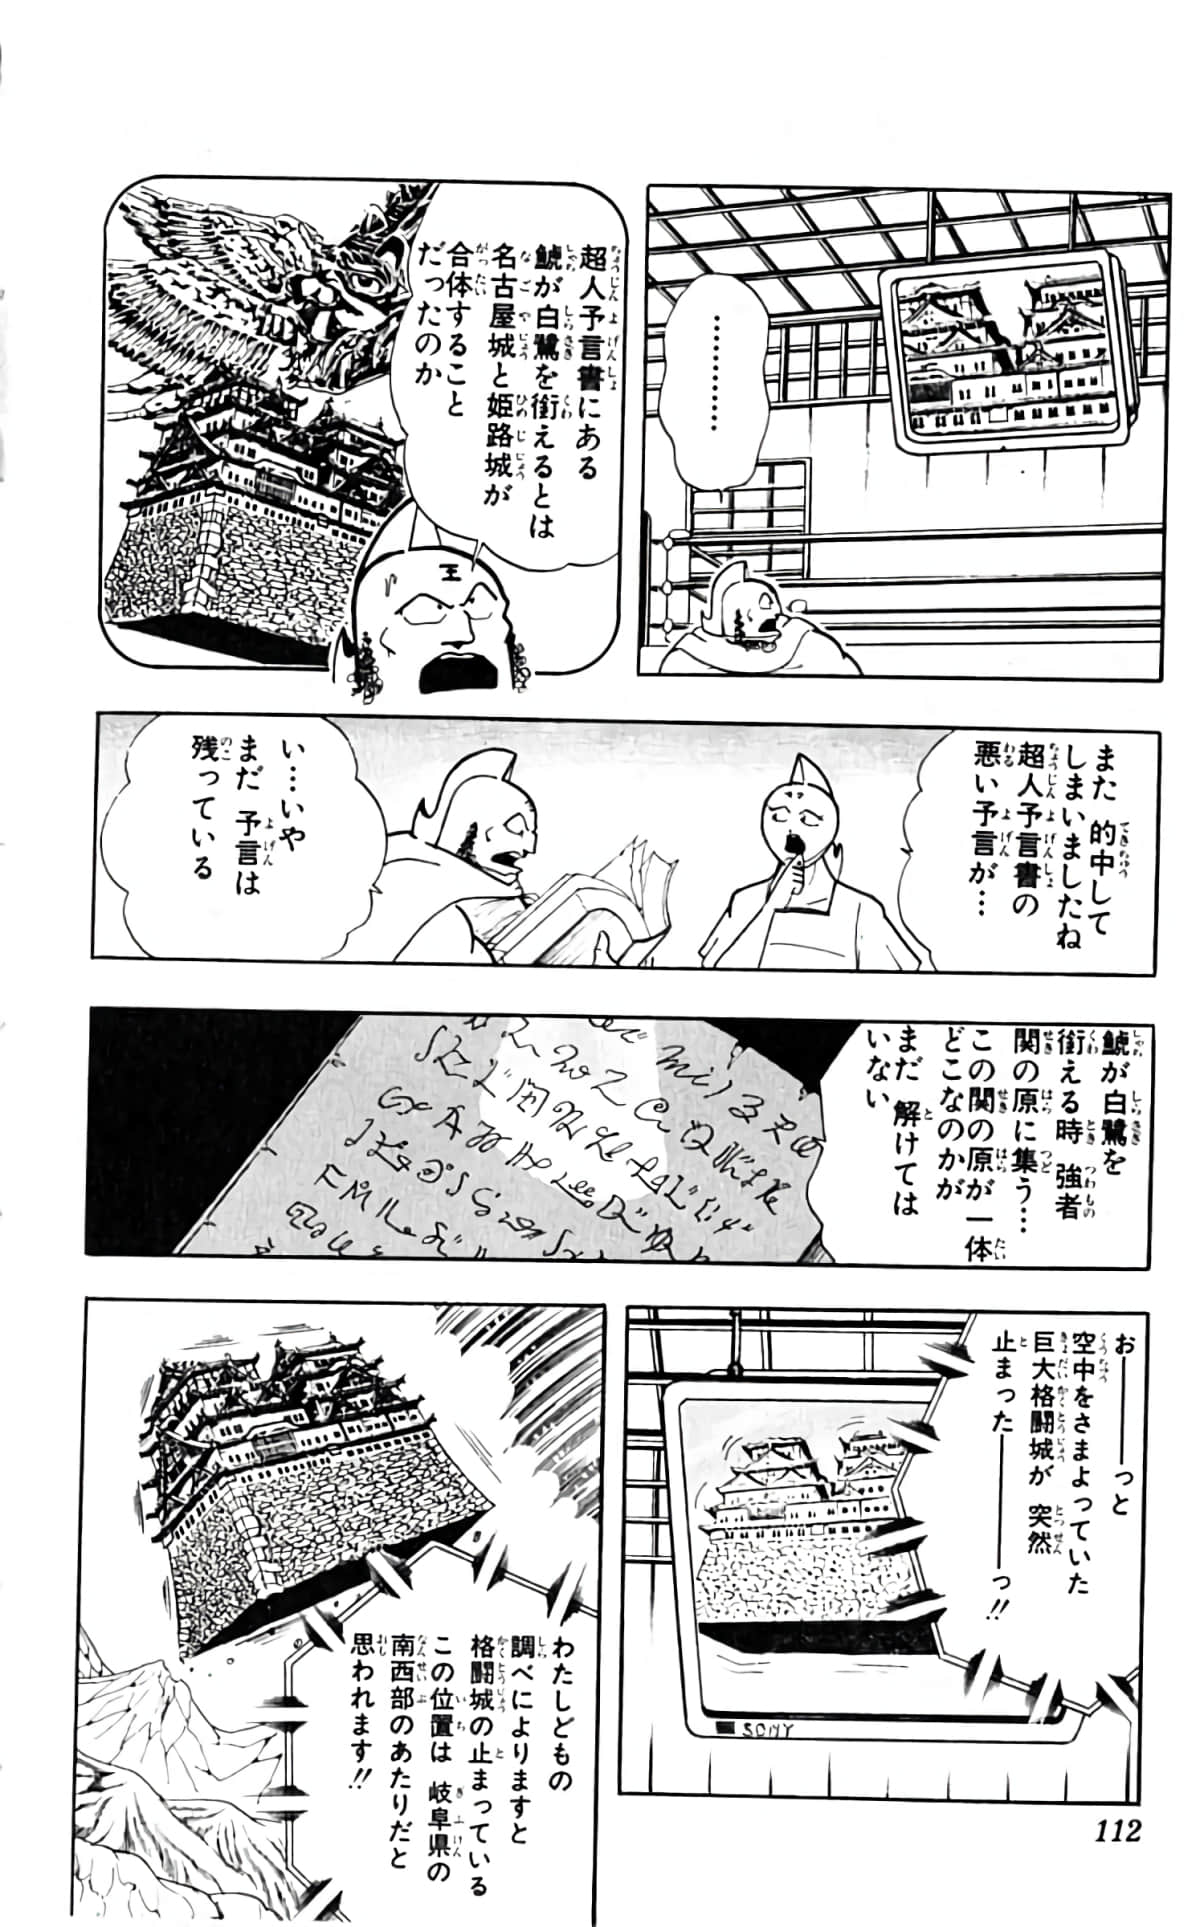 …………
超人予言書にある
鯱が白鷺を銜えるとは
名古屋城と姫路城が
合体すること
だったのか
王
また 的中して
しまいましたね
超人予言書の
悪い予言が…
い…いや
まだ 予言は
残っている
鯱が白鷺を
銜える時 強者
関の原に集う…
この関の原が 一体
どこなのかが
まだ 解けては
いない
おーーっと
空中をさまよっていた
巨大格闘城が 突然
止まったーーっ!!
SONY
わたしどもの
調べによりますと
格闘城の止まっている
この位置は 岐阜県の
南西部のあたりだと
思われます!!
112